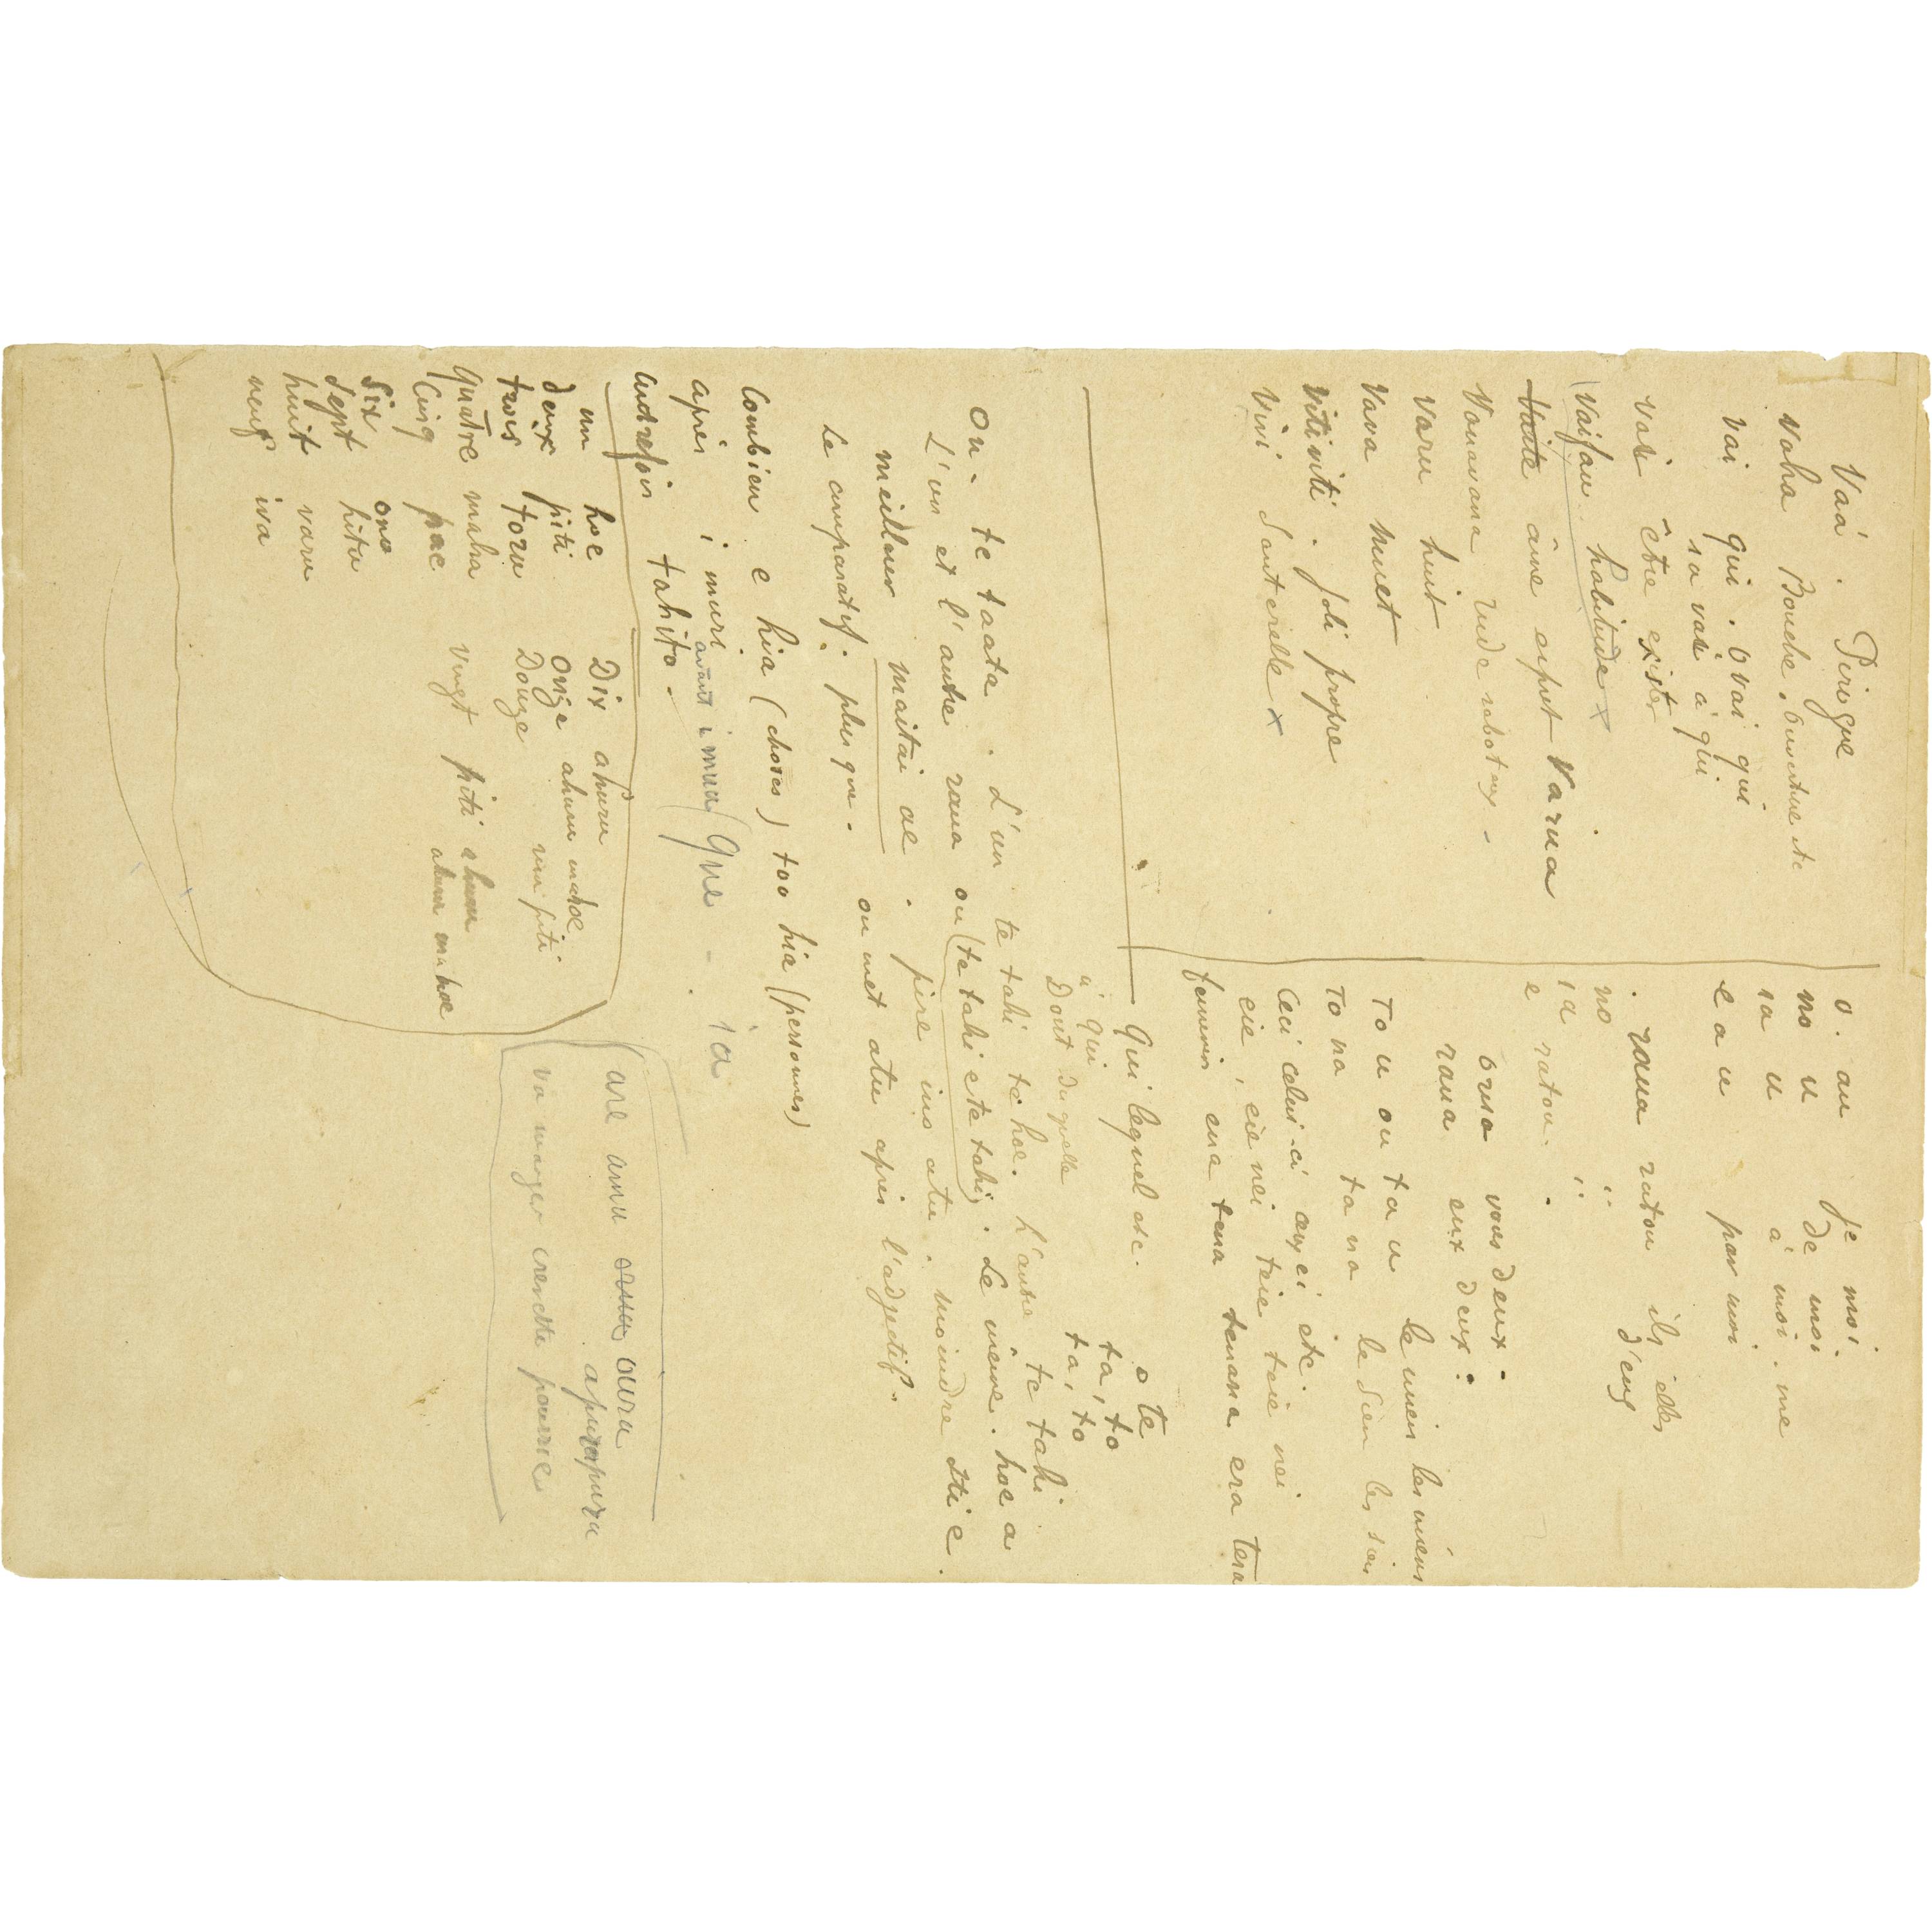 Vaá . Pirogue
Vaha Bouche. Ouverture etc
Vai qui . O vai qui
ia vai à qui
Vai être exister
(Vaifau habitude x
Vaite âme esprit Varua
Vanavana rude raboteux -
Varu huit
Vava muet
Vitiviti . joli propre
Vivi Sauterelle x
o . au je moi.
no u de moi
ia u à moi . me
e a u par moi
. raua ratou ils elles
no " d'eux
ia "
e ratou .
orua vous deux .
raua eux deux .
To u ou ta u le mien les miens
To na ta na le sien les siens
Ceci celui-ci ceux ci etc.
eie, eie nei teie teie nei
ena tena tenana era tera
Qui lequel etc. o te
à qui ta, to
Dont duquelle ta, to
On . te taata . L'un te tahi te hoe. L'autre te tahi
L'un et l'autre raua ou (te tahi e te tahi) . Le même . hoe a
meilleur maitai ae . pire ino atu . moindre itii e .
Le comparatif . plus que . on met atu après l'adjectif .
Combien e hia (choses) too hia (personnes)
après i muri avant i mua (que - ia
autrefois tahito .
un hoe Dix ahuru
deux piti Onze ahuru mahoe
trois toru Douze ma piti
quatre maha Vingt piti ahuru
Cinq pae ahuru mahoe
Six ono
Sept hitu
huit varu
neuf iva
oura
apurapura
va manger crevette pourrie